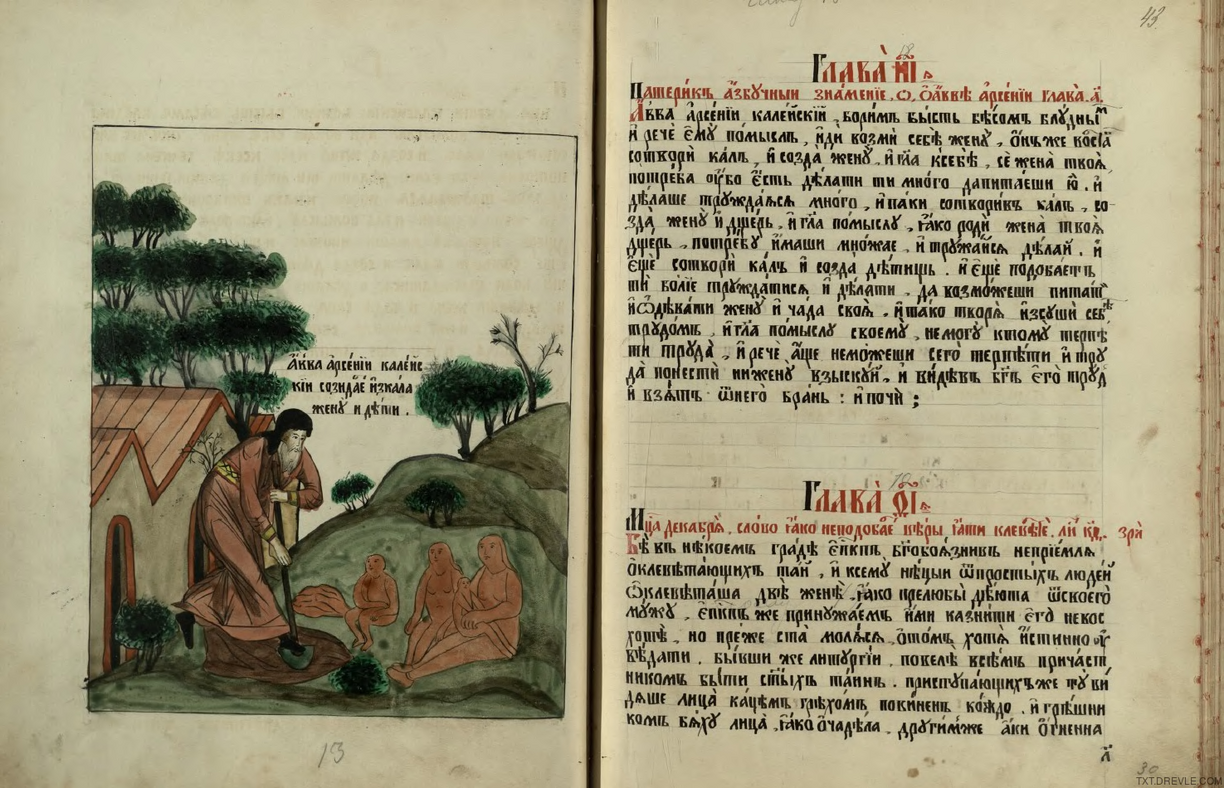 А҆вва арсе́нїи кале́йс
кїи созида́е и҆зка́ла
жену̀ и дѣ́ти .
43
Глава̀ и҃і҆
Патери́къ а҆збу́чныи зна́менїе .ѡ҆. ѻ҆а҆ввѣ а҆рсе́нїи глава̀ .а҃.
А҆вва а҆рсе́нїи кале́йскїй , бори́мъ бы́сть бѣ́сомъ блу́дны
и҆ речѐ є҆мꙋ̀ по́мыслъ , и҆ди возмѝ себѣ̀ жену̀ , ѻ҆́нъже
сотворѝ ка́лъ , и҆ созда̀ жену̀ , и҆ гл҃а ксебѣ̀ , сѐ жена̀ твоѧ̀
потре́ба ᲂу҆́бо є҆́сть дѣ́лати ти мно́го дапита́еши ю҆̀ . и҆
дѣ́лаше тружда́ѧсѧ мно́го , и҆ па́ки сотвори́въ ка́лъ , со
зда̀ жену̀ и҆ дще́рь , и҆ гл҃а по́мыслу , ꙗ҆́ко родѝ жена̀ твоѧ̀
дще́рь , потре́бу и҆́маши мно́жае , и҆ тружа́йсѧ дѣ́лай . и҆
є҆щѐ сотворѝ ка́лъ и҆ созда̀ дѣ́тищь . и҆ є҆щѐ подоба́етъ
тѝ бо́лїе тружда́тисѧ и҆ дѣ́лати , да возмо́жеши пита́т
и҆ ѡ҆дѣва́ти жену̀ и҆ ча́да своѧ̀ . и҆ та́ко творѧ̀ и҆зсушѝ себѐ
трудо́мъ , и҆ гл҃а по́мыслу своему̀ , немогу̀ ктому̀ терпѣ́
ти труда̀ , и҆ речѐ , а҆́ще немо́жеши сегѡ̀ терпѣ́ти и҆ тру
да̀ понестѝ ни жену̀ взыску́й , и҆ ви́дѣвъ бг҃ъ є҆гѡ̀ тру́д
и҆ взѧ́тъ ѿнегѡ̀ бра́нь : и҆ почѝ ;
Глава̀ ѳ҃і҆
Мц҃а декабрѧ̀ , сло́во ꙗ҆́ко неподоба́е вѣ́ры ꙗ҆́ти клеветѣ̀ ,
Бѣ̀ въ нѣ́коемъ гра́дѣ є҆пⷭ҇кпъ бг҃обоѧ́зникъ непрїе́млѧ
ѻ҆клевета́ющихъ та́й , и҆ ксему̀ нѣ́цыи ѿпросты́хъ люде́й
ѡ҆клевета́ша двѣ̀ женѣ̀ , ꙗ҆́ко прелюбы̀ дѣ́юта ѿсвоегѡ̀
му́жу , є҆пⷭ҇кпъ же принужа́емъ и҆́ми казни́ти є҆гѡ̀ невос
хотѣ̀ , но пре́же ста̀ молѧ́сѧ , ѻ҆то́мъ хотѧ̀ и҆́стинно ᲂу҆
вѣ́дати . бы́вши же литургі́и , повелѣ̀ всѣ́мъ прича́ст
никомъ бы́ти ст҃ы́хъ та́инъ . приступа́ющихъ же ту̀ ви
дѧ́ше лица̀ ка́цемъ грѣхо́мъ пови́ненъ ко́ждо . и҆ грѣ́шни
комъ бѧ́ху лица̀ , ꙗ҆́ко ѻ҆чадѣ́ла , други́мже а҆́ки ѻ҆́гненна
13
30
TXT.DREVLE.COM